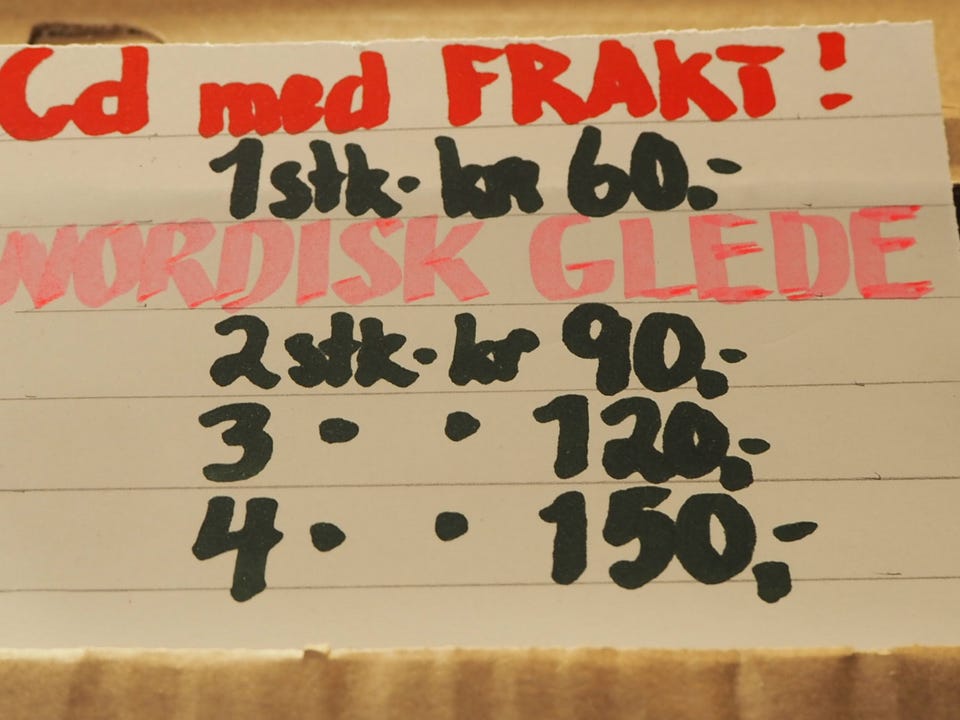 Cd med FRAKT!
1 stk. kr 60.-
NORDISK GLEDE
2 stk. kr 90,-
3 • • 120,-
4 • • 150,-